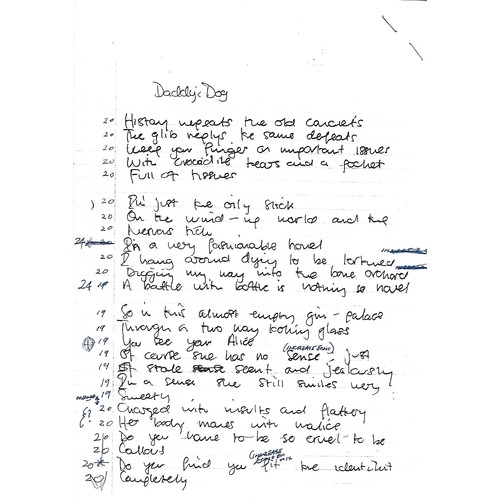 Daddy's Dog
20 History repeats the old conceits
20 The glib replys the same defeats
20 Keep your finger on important issues
20 With crocodile tears and a pocket
20 Full of tissues
) 20 I'm just the oily slick
20 On the wind-up world and the
20 Nervous tick
24 20 In a very fashionable hovel
20 I hang around dying to be tortured
20 Digging my way into the bone orchard
24 19 A battle with bottle is nothing so novel
19 So in this almost empty gin-palace
19 Through a two way looking glass
4 19 You see your Alice
19 Of course she has no sense just
19 stale sense scent and jealousy
19 In a sense she still smiles very
19 Sweetly
20 Charged with insults and flattery
20 Her body moves with malice
20 Do you have to be so cruel to be
20 Callous
20* Do you find you fit the identikit
20 Completely